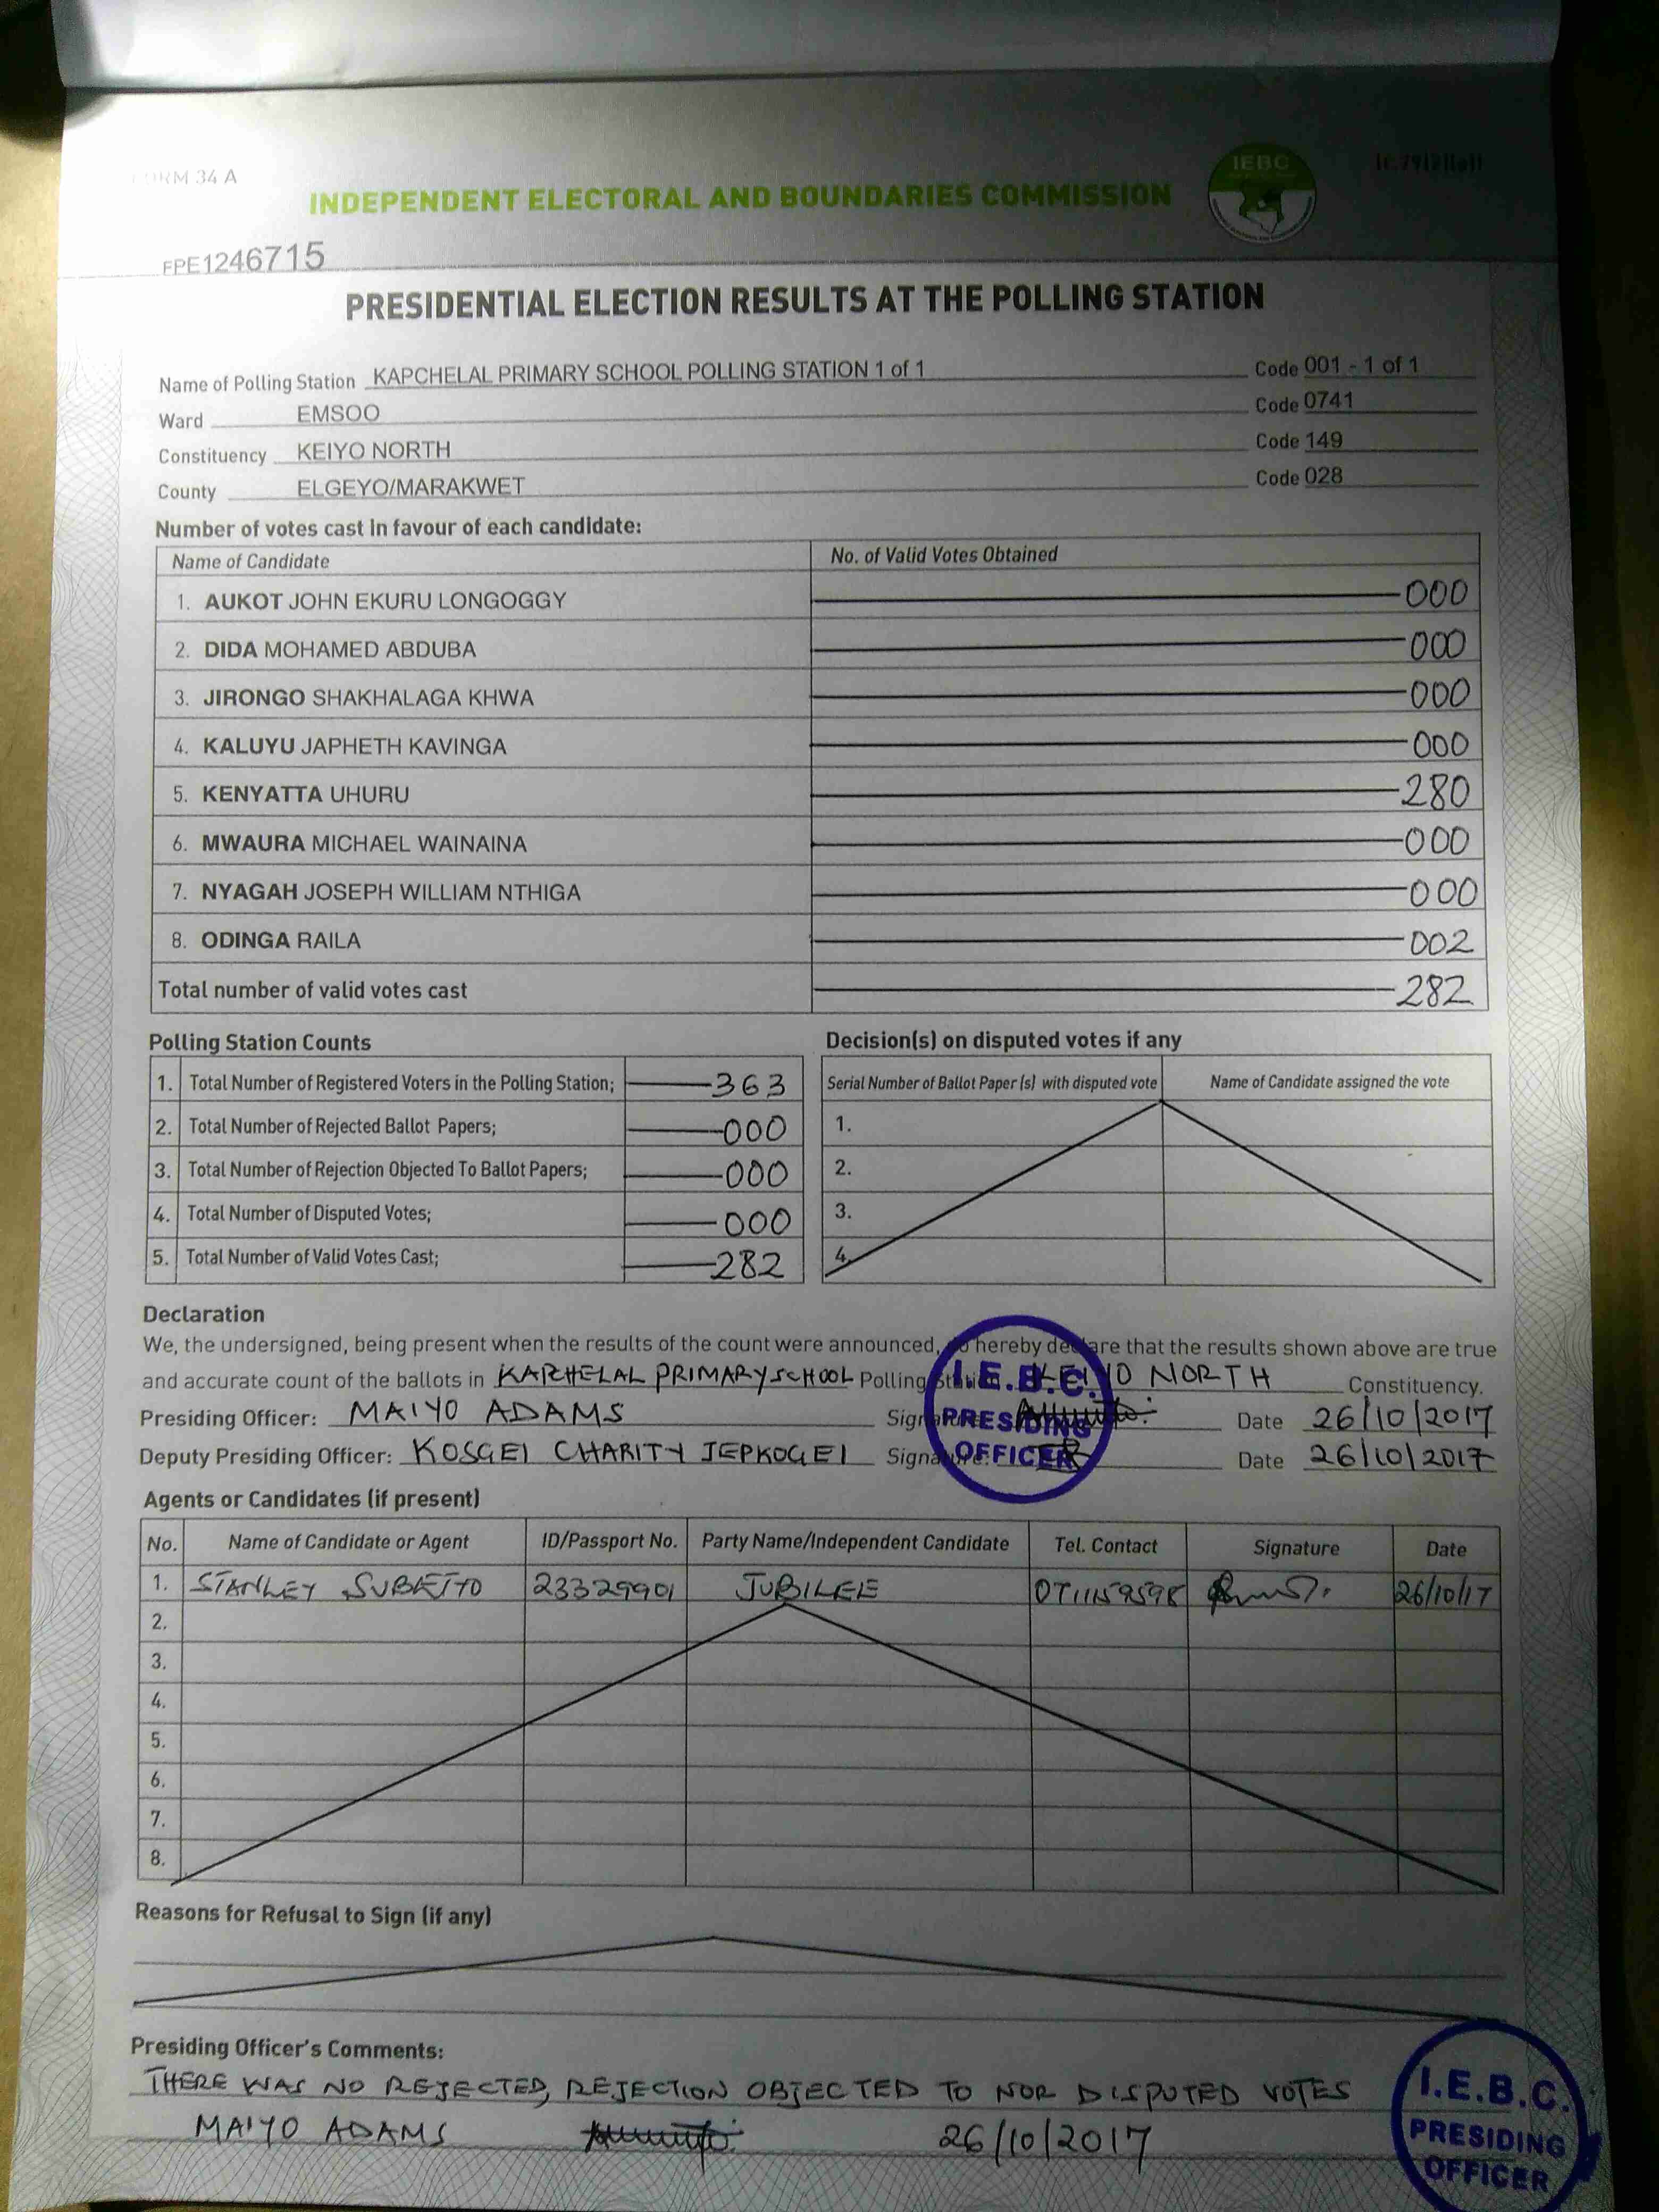 FORM 34 A
IEBC
INDEPENDENT ELECTORAL AND BOUNDARIES COMMISSION
FPE1246715
PRESIDENTIAL ELECTION RESULTS AT THE POLLING STATION
Name of Polling Station KAPCHELAL PRIMARY SCHOOL POLLING STATION 1 of 1 Code 001 - 1 of 1
Ward EMSOO Code 0741
Constituency KEIYO NORTH Code 149
County ELGEYO/MARAKWET Code 028
Number of votes cast in favour of each candidate:
Name of Candidate No. of Valid Votes Obtained
1. AUKOT JOHN EKURU LONGOGGY 000
2. DIDA MOHAMED ABDUBA 000
3. JIRONGO SHAKHALAGA KHWA 000
4. KALUYU JAPHETH KAVINGA 000
5. KENYATTA UHURU 280
6. MWAURA MICHAEL WAINAINA 000
7. NYAGAH JOSEPH WILLIAM NTHIGA 000
8. ODINGA RAILA 002
Total number of valid votes cast 282
Polling Station Counts
1. Total Number of Registered Voters in the Polling Station; 363
2. Total Number of Rejected Ballot Papers; 000
3. Total Number of Rejection Objected To Ballot Papers; 000
4. Total Number of Disputed Votes; 000
5. Total Number of Valid Votes Cast; 282
Decision(s) on disputed votes if any
Serial Number of Ballot Paper (s) with disputed vote Name of Candidate assigned the vote
1.
2.
3.
4.
Declaration
We, the undersigned, being present when the results of the count were announced, do hereby declare that the results shown above are true
and accurate count of the ballots in KAPCHELAL PRIMARY SCHOOL Polling Station KEIYO NORTH Constituency.
Presiding Officer: MAIYO ADAMS Signature: Date 26/10/2017
Deputy Presiding Officer: KOSGEI CHARITY JEPKOGEI Signature: Date 26/10/2017
I.E.B.C.
PRESIDING
OFFICER
Agents or Candidates (if present)
No. Name of Candidate or Agent ID/Passport No. Party Name/Independent Candidate Tel. Contact Signature Date
1. STANLEY 23329901 JUBILEE 26/10/17
2.
3.
4.
5.
6.
7.
8.
Reasons for Refusal to Sign (if any)
Presiding Officer's Comments:
THERE WAS NO REJECTED, REJECTION OBJECTED TO NOR DISPUTED VOTES
MAIYO ADAMS 26/10/2017
I.E.B.C.
PRESIDING
OFFICER